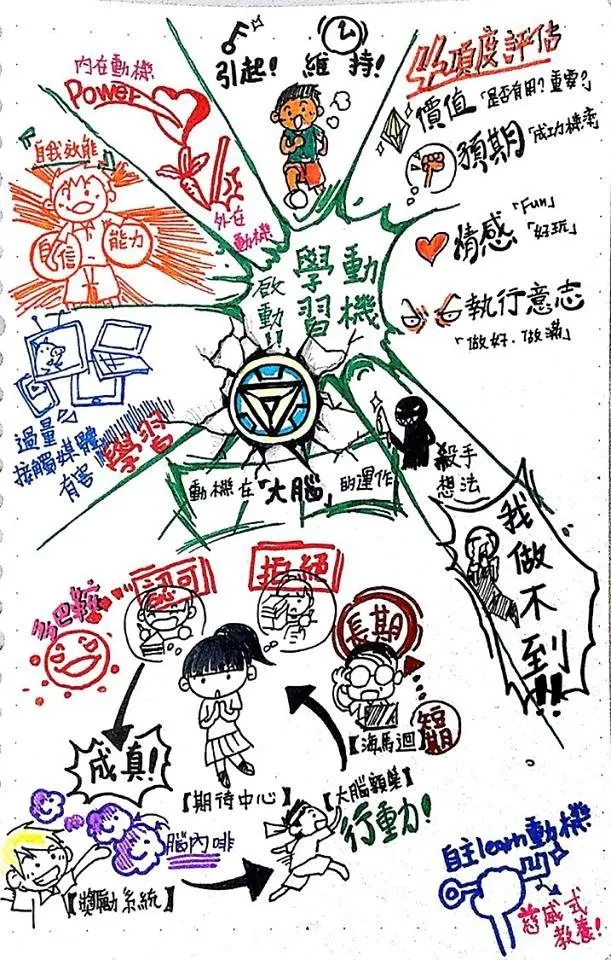 內在動機
Power
外在
動機
引起！ 維持！
4項度評估
價值「是否有用？重要？」
預期「成功機率」
情感「Fun」
「好玩」
執行意志
「做好．做滿」
自我效能
自信
能力
學習
動機
啟動!!
過量
接觸媒體
有害
學習
動機在「大腦」的運作
殺手
想法
我做不到!!
認可
拒絕
多巴胺
長期
短期
【海馬迴】
成真！
【期待中心】
【大腦額葉】
行動力！
腦內啡
【獎勵系統】
自主learn動機
式
教養！